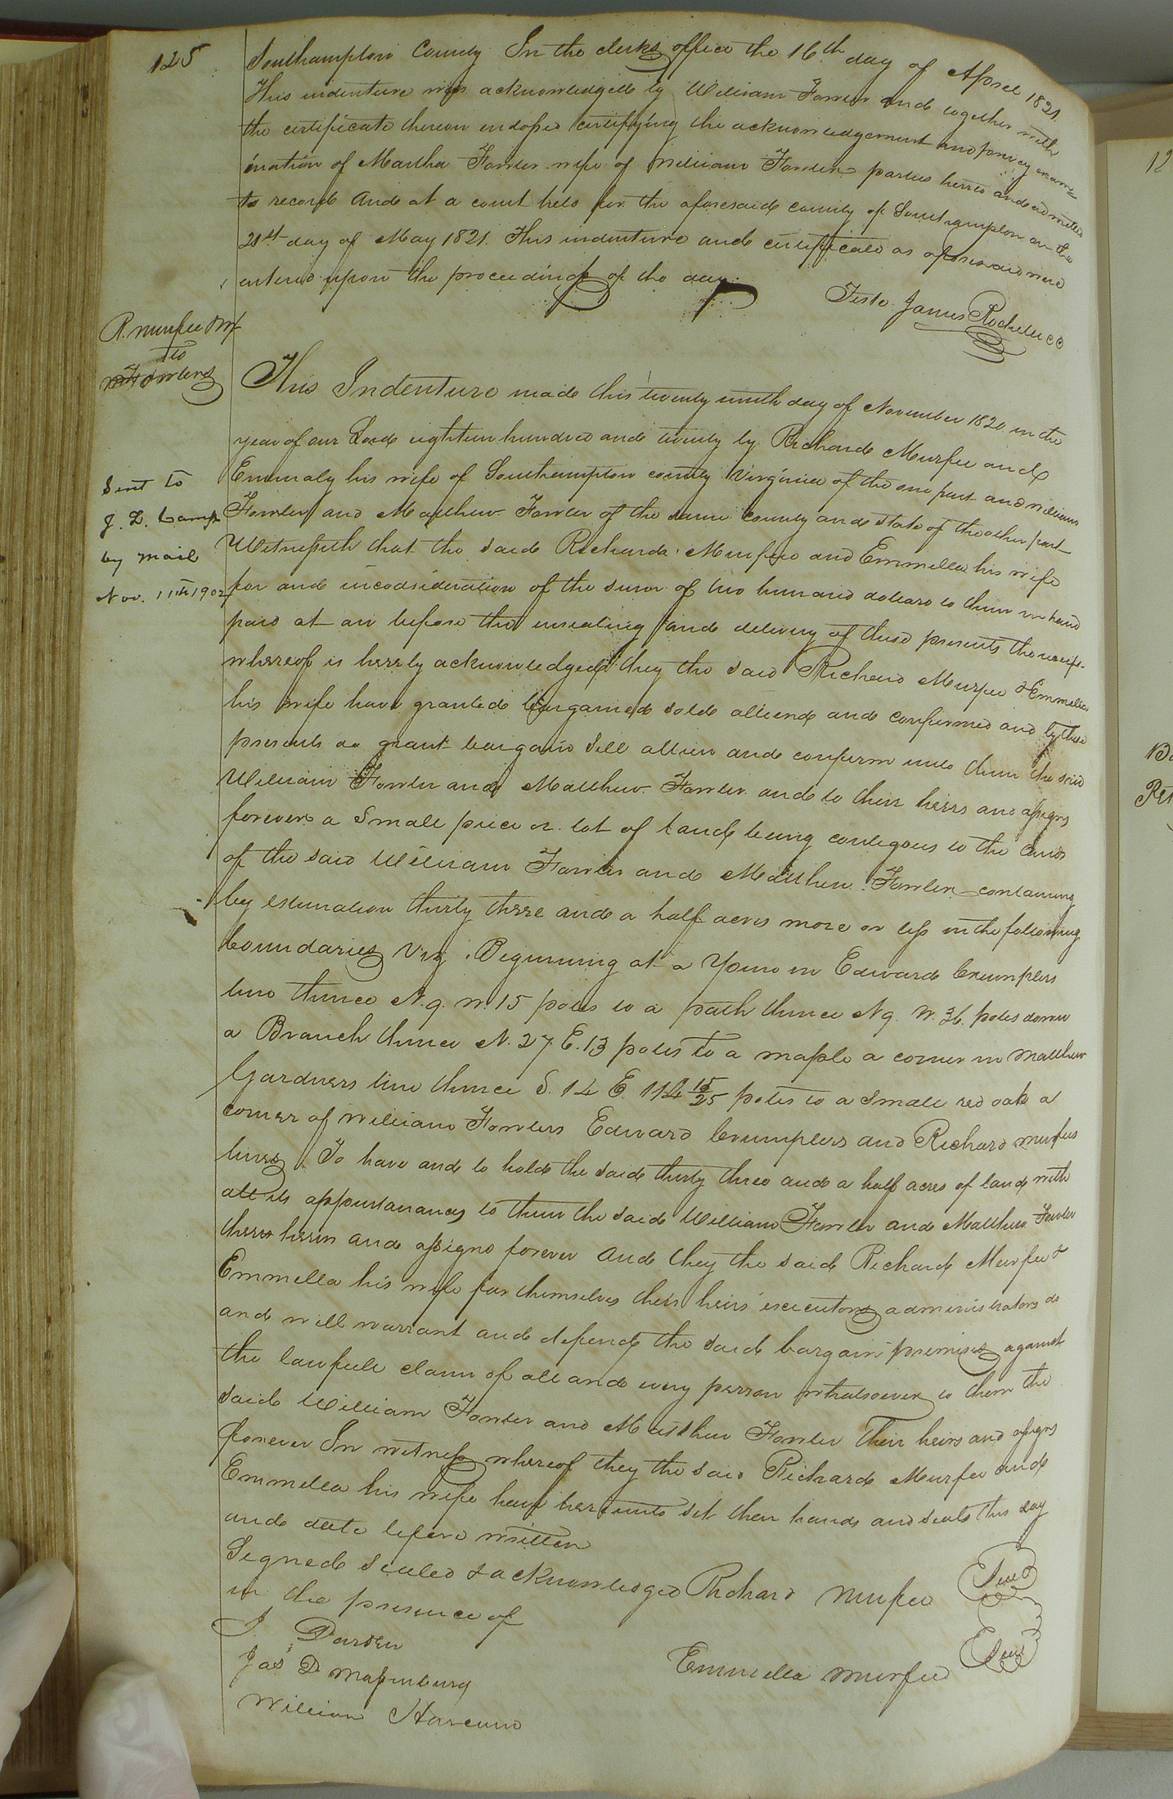 125
Southampton County In the clerks office the 16th day of April 1821
This indenture was acknowledged by William Fowler and together with
the certificate thereon endorsed certifying the acknowledgement and privy exam-
ination of Martha Fowler wife of William Fowler parties hereto and admitted
to record And at a court held for the aforesaid county of Southampton on the
21st day of May 1821. This indenture and certificate as aforesaid were
entered upon the proceedings of the day.
Teste James Rochelle CC
R. Murfee &wf
to
Fowlers
This Indenture made this twenty ninth day of November 1820 in the
year of our Lord eighteen hundred and twenty by Richard Murfee and
Emmaly his wife of Southampton county Virginia of the one part and William
Fowler and Matthew Fowler of the same county and state of the other part
Sent to
J. L. Camp
by mail
Nov. 11th 1902
Witnesseth that the said Richard Murfee and Emmella his wife
for and inconsideration of the sum of two hundred dollars to them in hand
paid at or before the ensealing and delivery of these presents the receipt
whereof is hereby acknowledged they the said Richard Murfee & Emmella
his wife have granted bargained sold aliend and confirmed and by these
presents do grant bargain sell alien and confirm unto them the said
William Fowler and Matthew Fowler and to their heirs and assigns
forever a small piece or lot of land being contegous to the lands
of the said William Fowler and Matthew Fowler containing
by estimation thirty three and a half acres more or less in the following
boundaries Viz. Beginning at a in Edward Crumplers
line thence N. 9. W. 15 poles to a path thence N 9. W. 36 poles down
a Branch thence N. 27 E. 13 poles to a maple a corner in Matthew
Gardners line thence S. 14 E. 114 15/25 poles to a small red oak a
corner of William Fowlers Edward Crumplers and Richard Murfees
lines. To have and to hold the said thirty three and a half acres of land with
all its appurtanances to them the said William Fowler and Matthew Fowler
there heirs and assigns forever And they the said Richard Murfee &
Emmella his wife for themselves their heirs executors administrators do
and will warrant and defend the said bargain premises against
the lawfull claim of all and every person whatsoever to them the
said William Fowler and Matthew Fowler Their heirs and assigns
forever In witness whereof they the said Richard Murfee and
Emmella his wife have hereunto set their hands and seals this day
and date before written
Signed sealed & acknowledged Richard Murfee Seal
in the presence of
J Darden
Jas D Massenburg
Emmella Murfee Seal
William Harcum